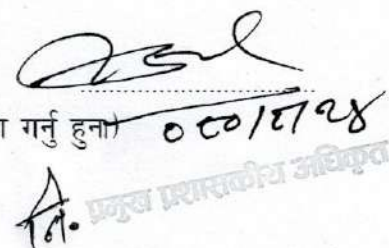 ा गर्नु हुन।)
०८०/८/२४
नि. प्रमुख प्रशासकीय अधिकृत